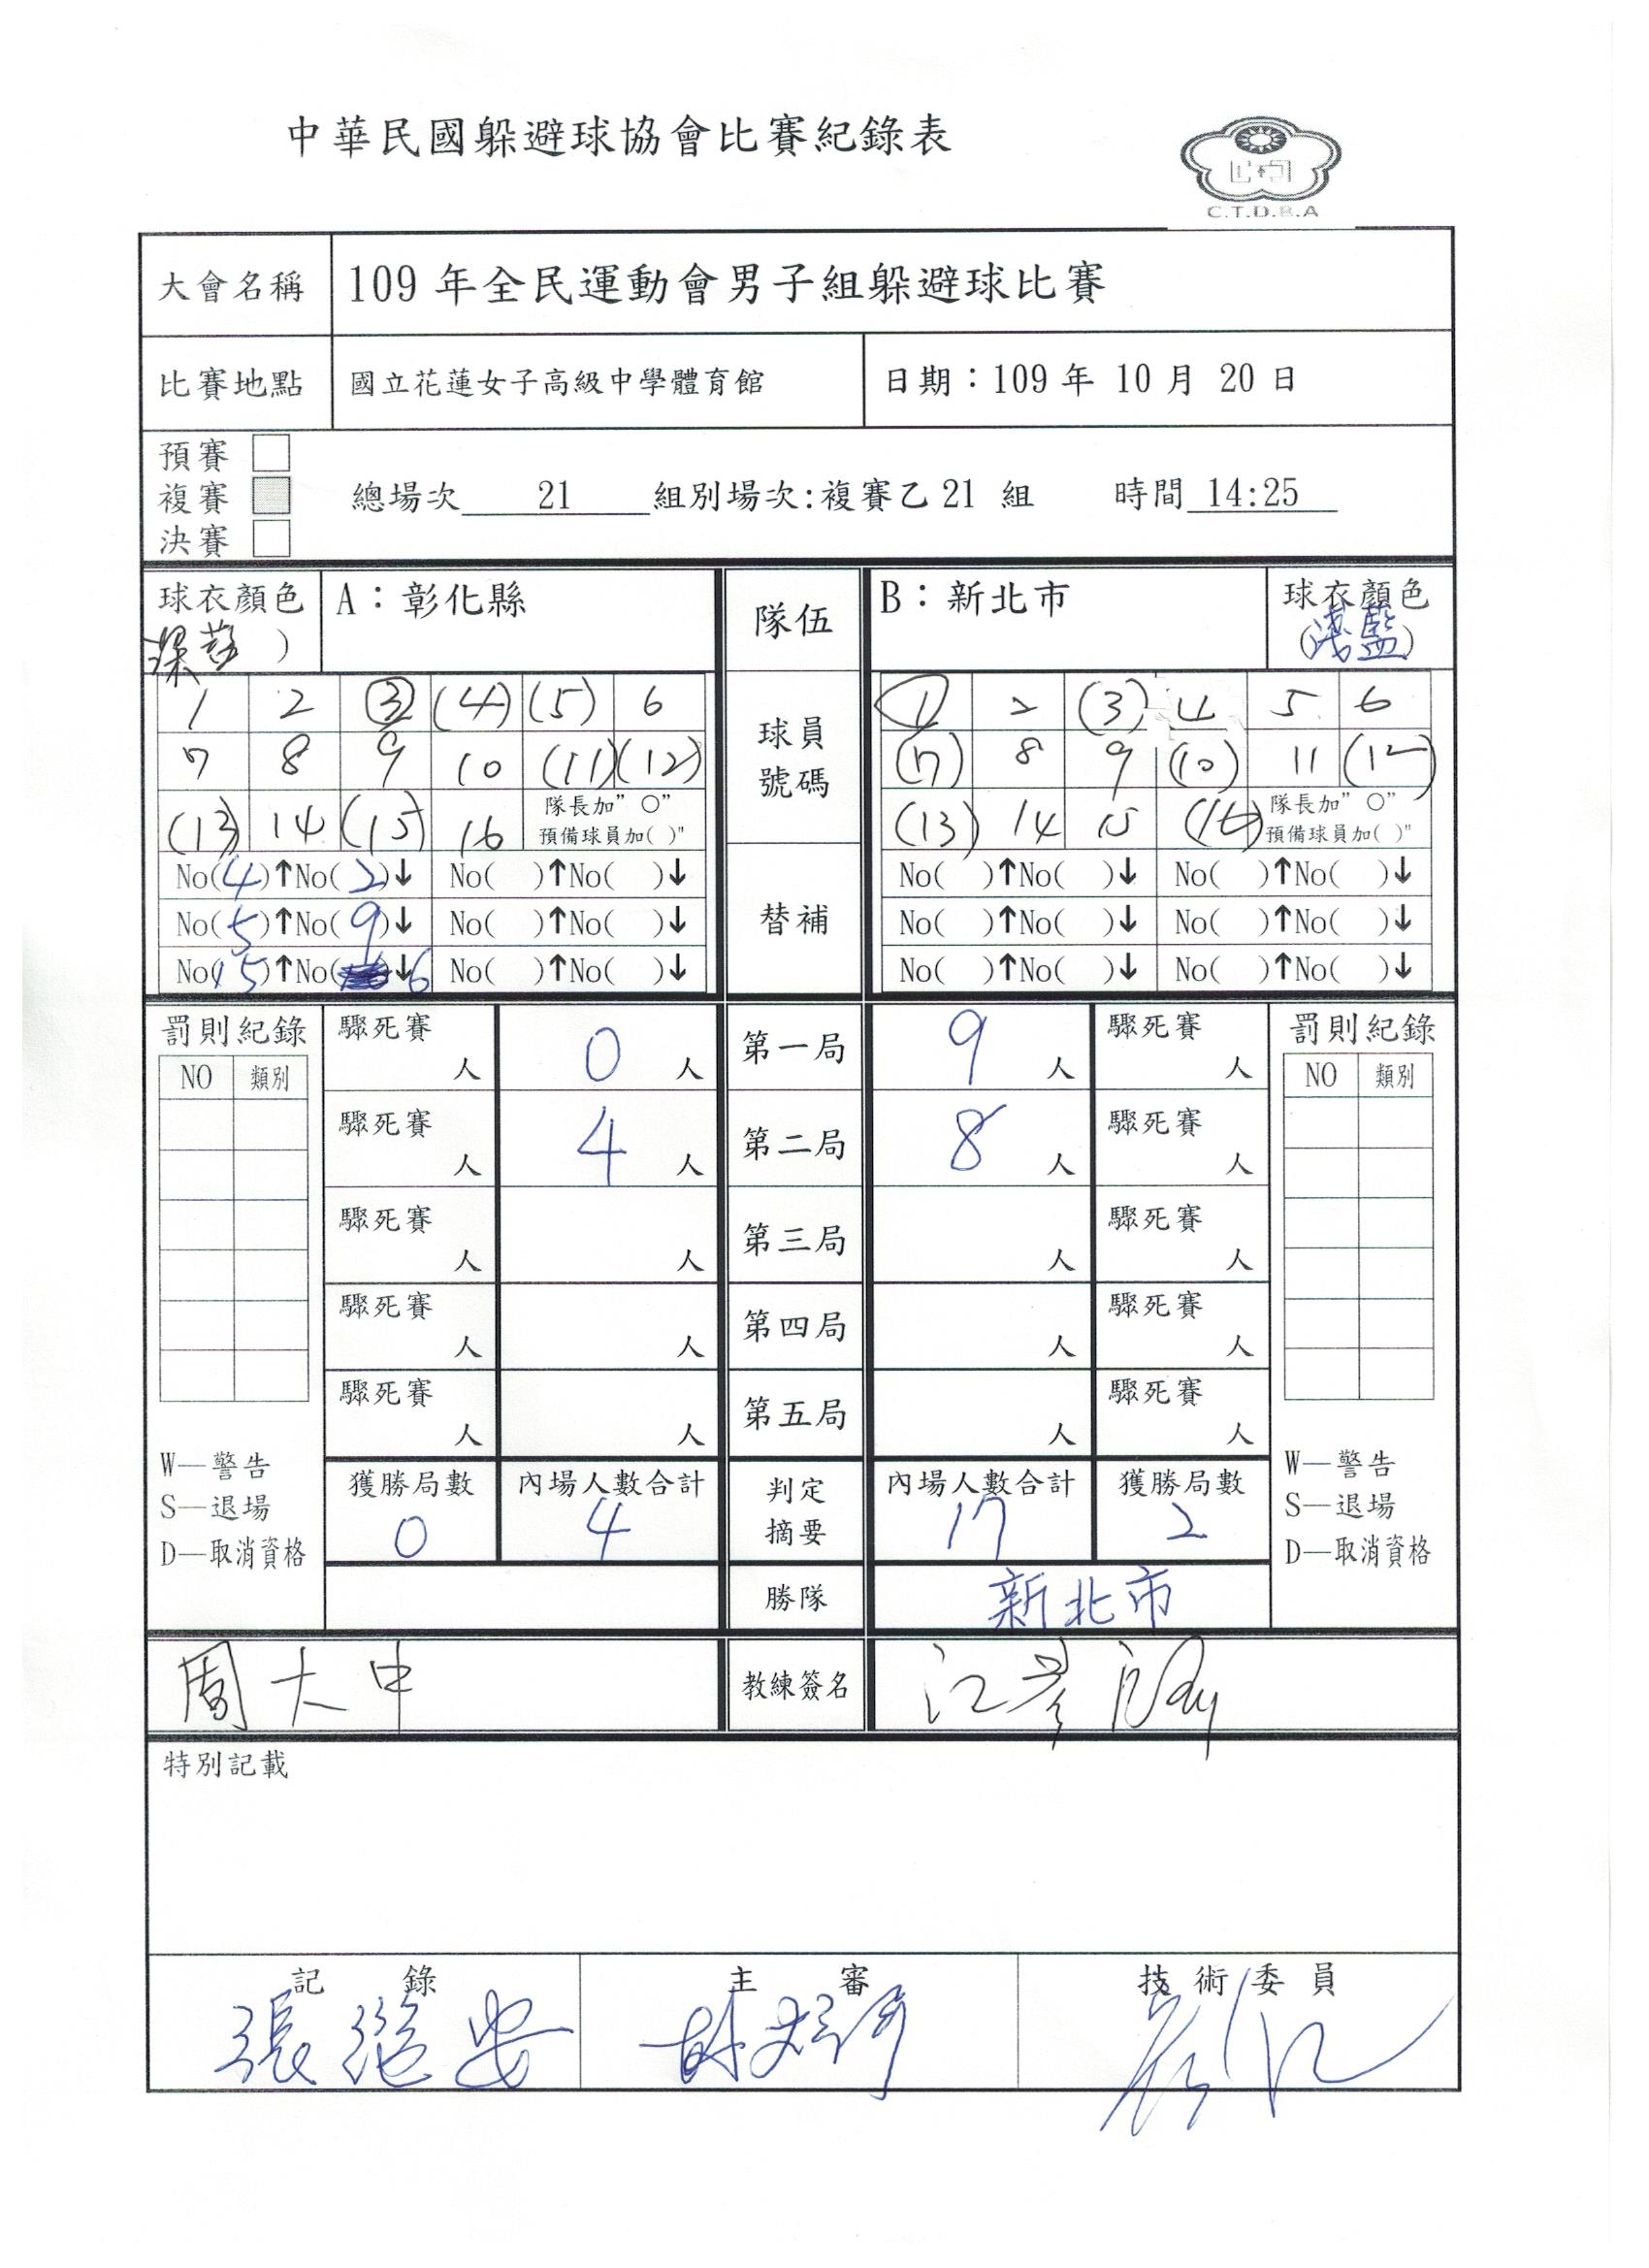 中華民國躲避球協會比賽紀錄表
C.T.D.B.A
大會名稱 109 年全民運動會男子組躲避球比賽
比賽地點 國立花蓮女子高級中學體育館 日期：109 年 10 月 20 日
預賽
複賽 總場次 21 組別場次:複賽乙 21 組 時間 14:25
決賽
球衣顏色 A：彰化縣 隊伍 B：新北市 球衣顏色
深 ) (淺藍)
球員號碼
1 2 3 (4) (5) 6 1 2 (3) 4 5 6
7 8 9 10 (11) (12) (7) 8 9 (10) 11 (12)
(13) 14 (15) 16 隊長加”○” 預備球員加( )" (13) 14 15 (16) 隊長加”○” 預備球員加( )"
替補
No(4)↑No(2)↓ No( )↑No( )↓ No( )↑No( )↓ No( )↑No( )↓
No(5)↑No(9)↓ No( )↑No( )↓ No( )↑No( )↓ No( )↑No( )↓
No(15)↑No( )↓6 No( )↑No( )↓ No( )↑No( )↓ No( )↑No( )↓
罰則紀錄 驟死賽 人 0 人 第一局 9 人 驟死賽 人 罰則紀錄
NO 類別 NO 類別
驟死賽 人 4 人 第二局 8 人 驟死賽 人
驟死賽 人 人 第三局 人 驟死賽 人
驟死賽 人 人 第四局 人 驟死賽 人
驟死賽 人 人 第五局 人 驟死賽 人
W—警告 W—警告
S—退場 S—退場
D—取消資格 D—取消資格
獲勝局數 內場人數合計 判定摘要 內場人數合計 獲勝局數
0 4 17 2
勝隊 新北市
周大中 教練簽名 江
特別記載
記錄 主審 技術委員
張繼安 林